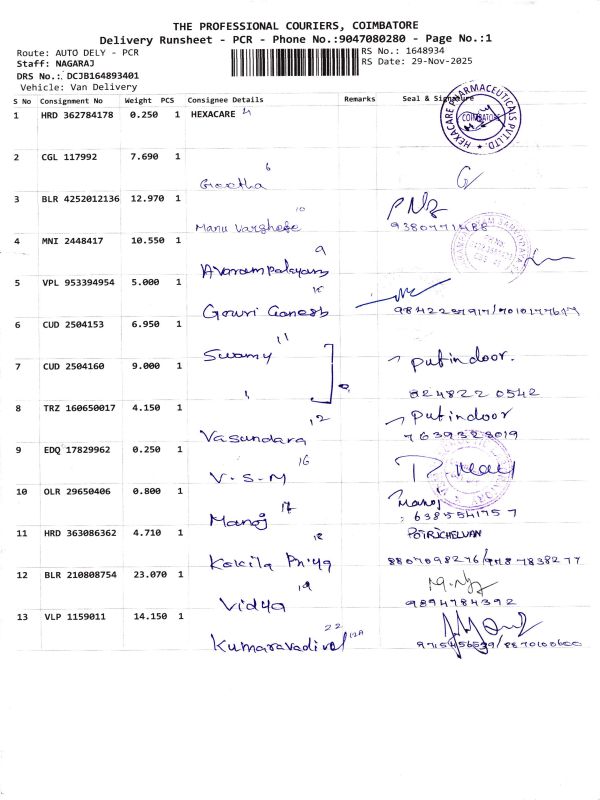 THE PROFESSIONAL COURIERS, COIMBATORE
Delivery Runsheet - PCR - Phone No.:9047080280 - Page No.:1
Route: AUTO DELY - PCR
RS No.: 1648934
Staff: NAGARAJ
RS Date: 29-Nov-2025
DRS No.: DCJB164893401
Vehicle: Van Delivery
S No Consignment No Weight PCS Consignee Details Remarks Seal & Signature
1 HRD 362784178 0.250 1 HEXACARE 4
HEXACARE PHARMACEUTICALS PVT.LTD. COIMBATORE
2 CGL 117992 7.690 1
6
Geetha
3 BLR 4252012136 12.970 1
10
Manu Varghese 9380771488
4 MNI 2448417 10.550 1
9
Avarampalayam
5 VPL 953394954 5.000 1
Gowri Ganesh
6 CUD 2504153 6.950 1
11
Swamy putindoor.
7 CUD 2504160 9.000 1
824822 0542
8 TRZ 160650017 4.150 1 putindoor
12
Vasundara 7639328019
9 EDQ 17829962 0.250 1
16
V.S.M
10 OLR 29650406 0.800 1 Manoj
17
Manoj : 6385541757
11 HRD 363086362 4.710 1
18
Kokila Priya
12 BLR 210808754 23.070 1
19
Vidya 9894784392
13 VLP 1159011 14.150 1
22 12A
Kumaravadivel